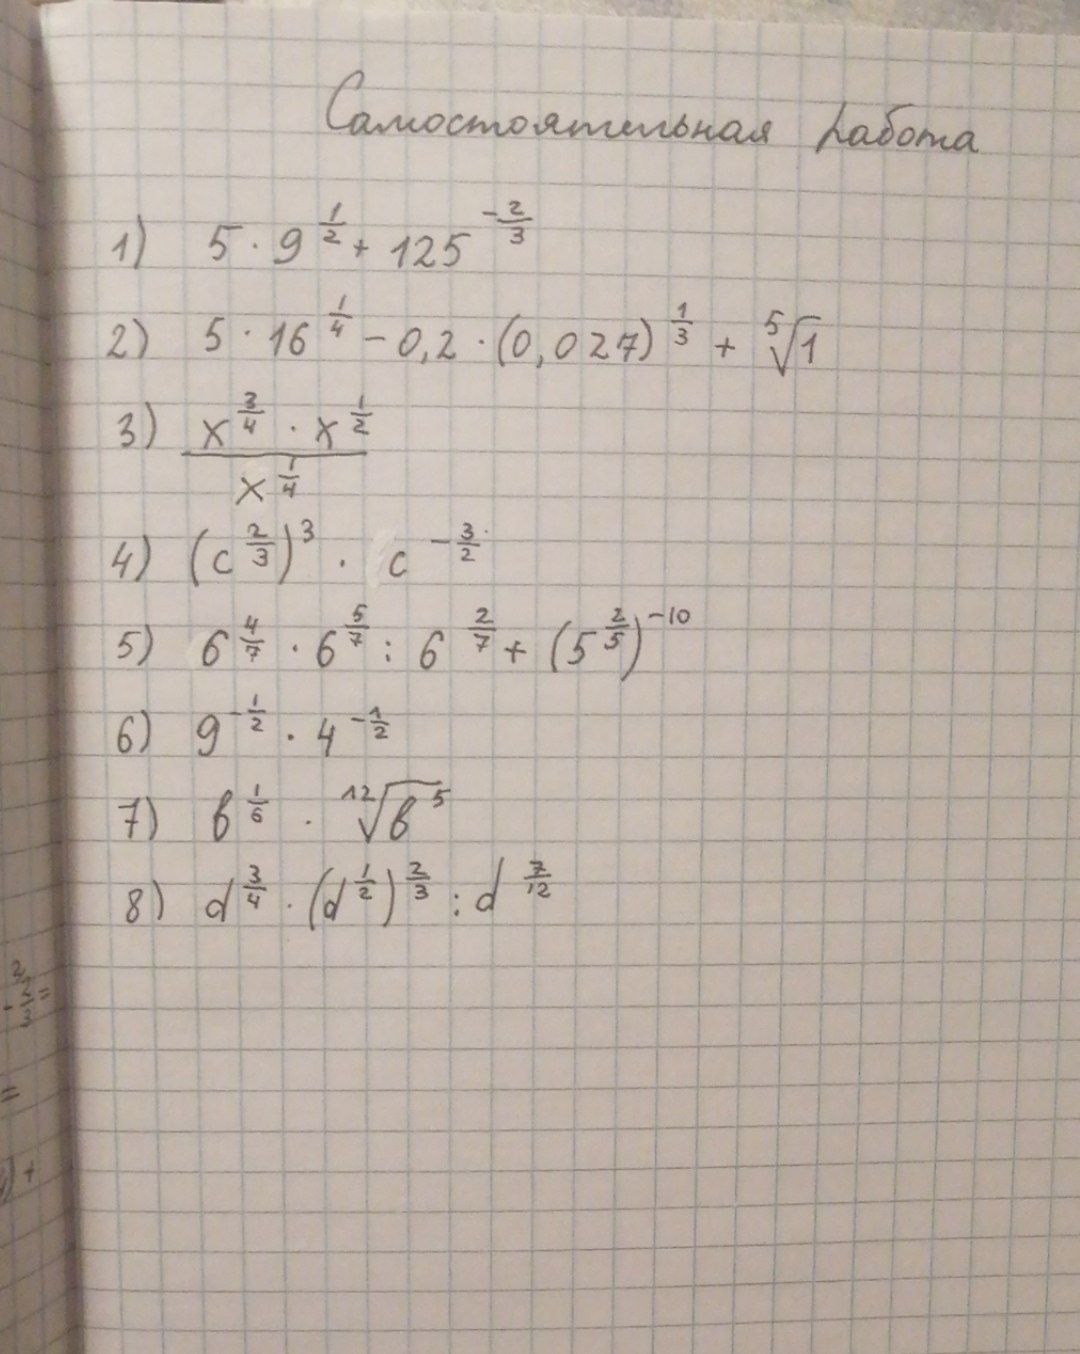 Самостоятельная работа
1) 5 · 9^(1/2) + 125^(-2/3)
2) 5 · 16^(1/4) - 0,2 · (0,027)^(1/3) + ⁵√1
3) (x^(3/4) · x^(1/2)) / x^(1/4)
4) (c^(2/3))^3 · c^(-3/2)
5) 6^(4/7) · 6^(5/7) : 6^(2/7) + (5^(2/5))^(-10)
6) 9^(-1/2) · 4^(-1/2)
7) в^(1/6) · ¹²√(в^5)
8) d^(3/4) · (d^(1/2))^(2/3) : d^(7/12)